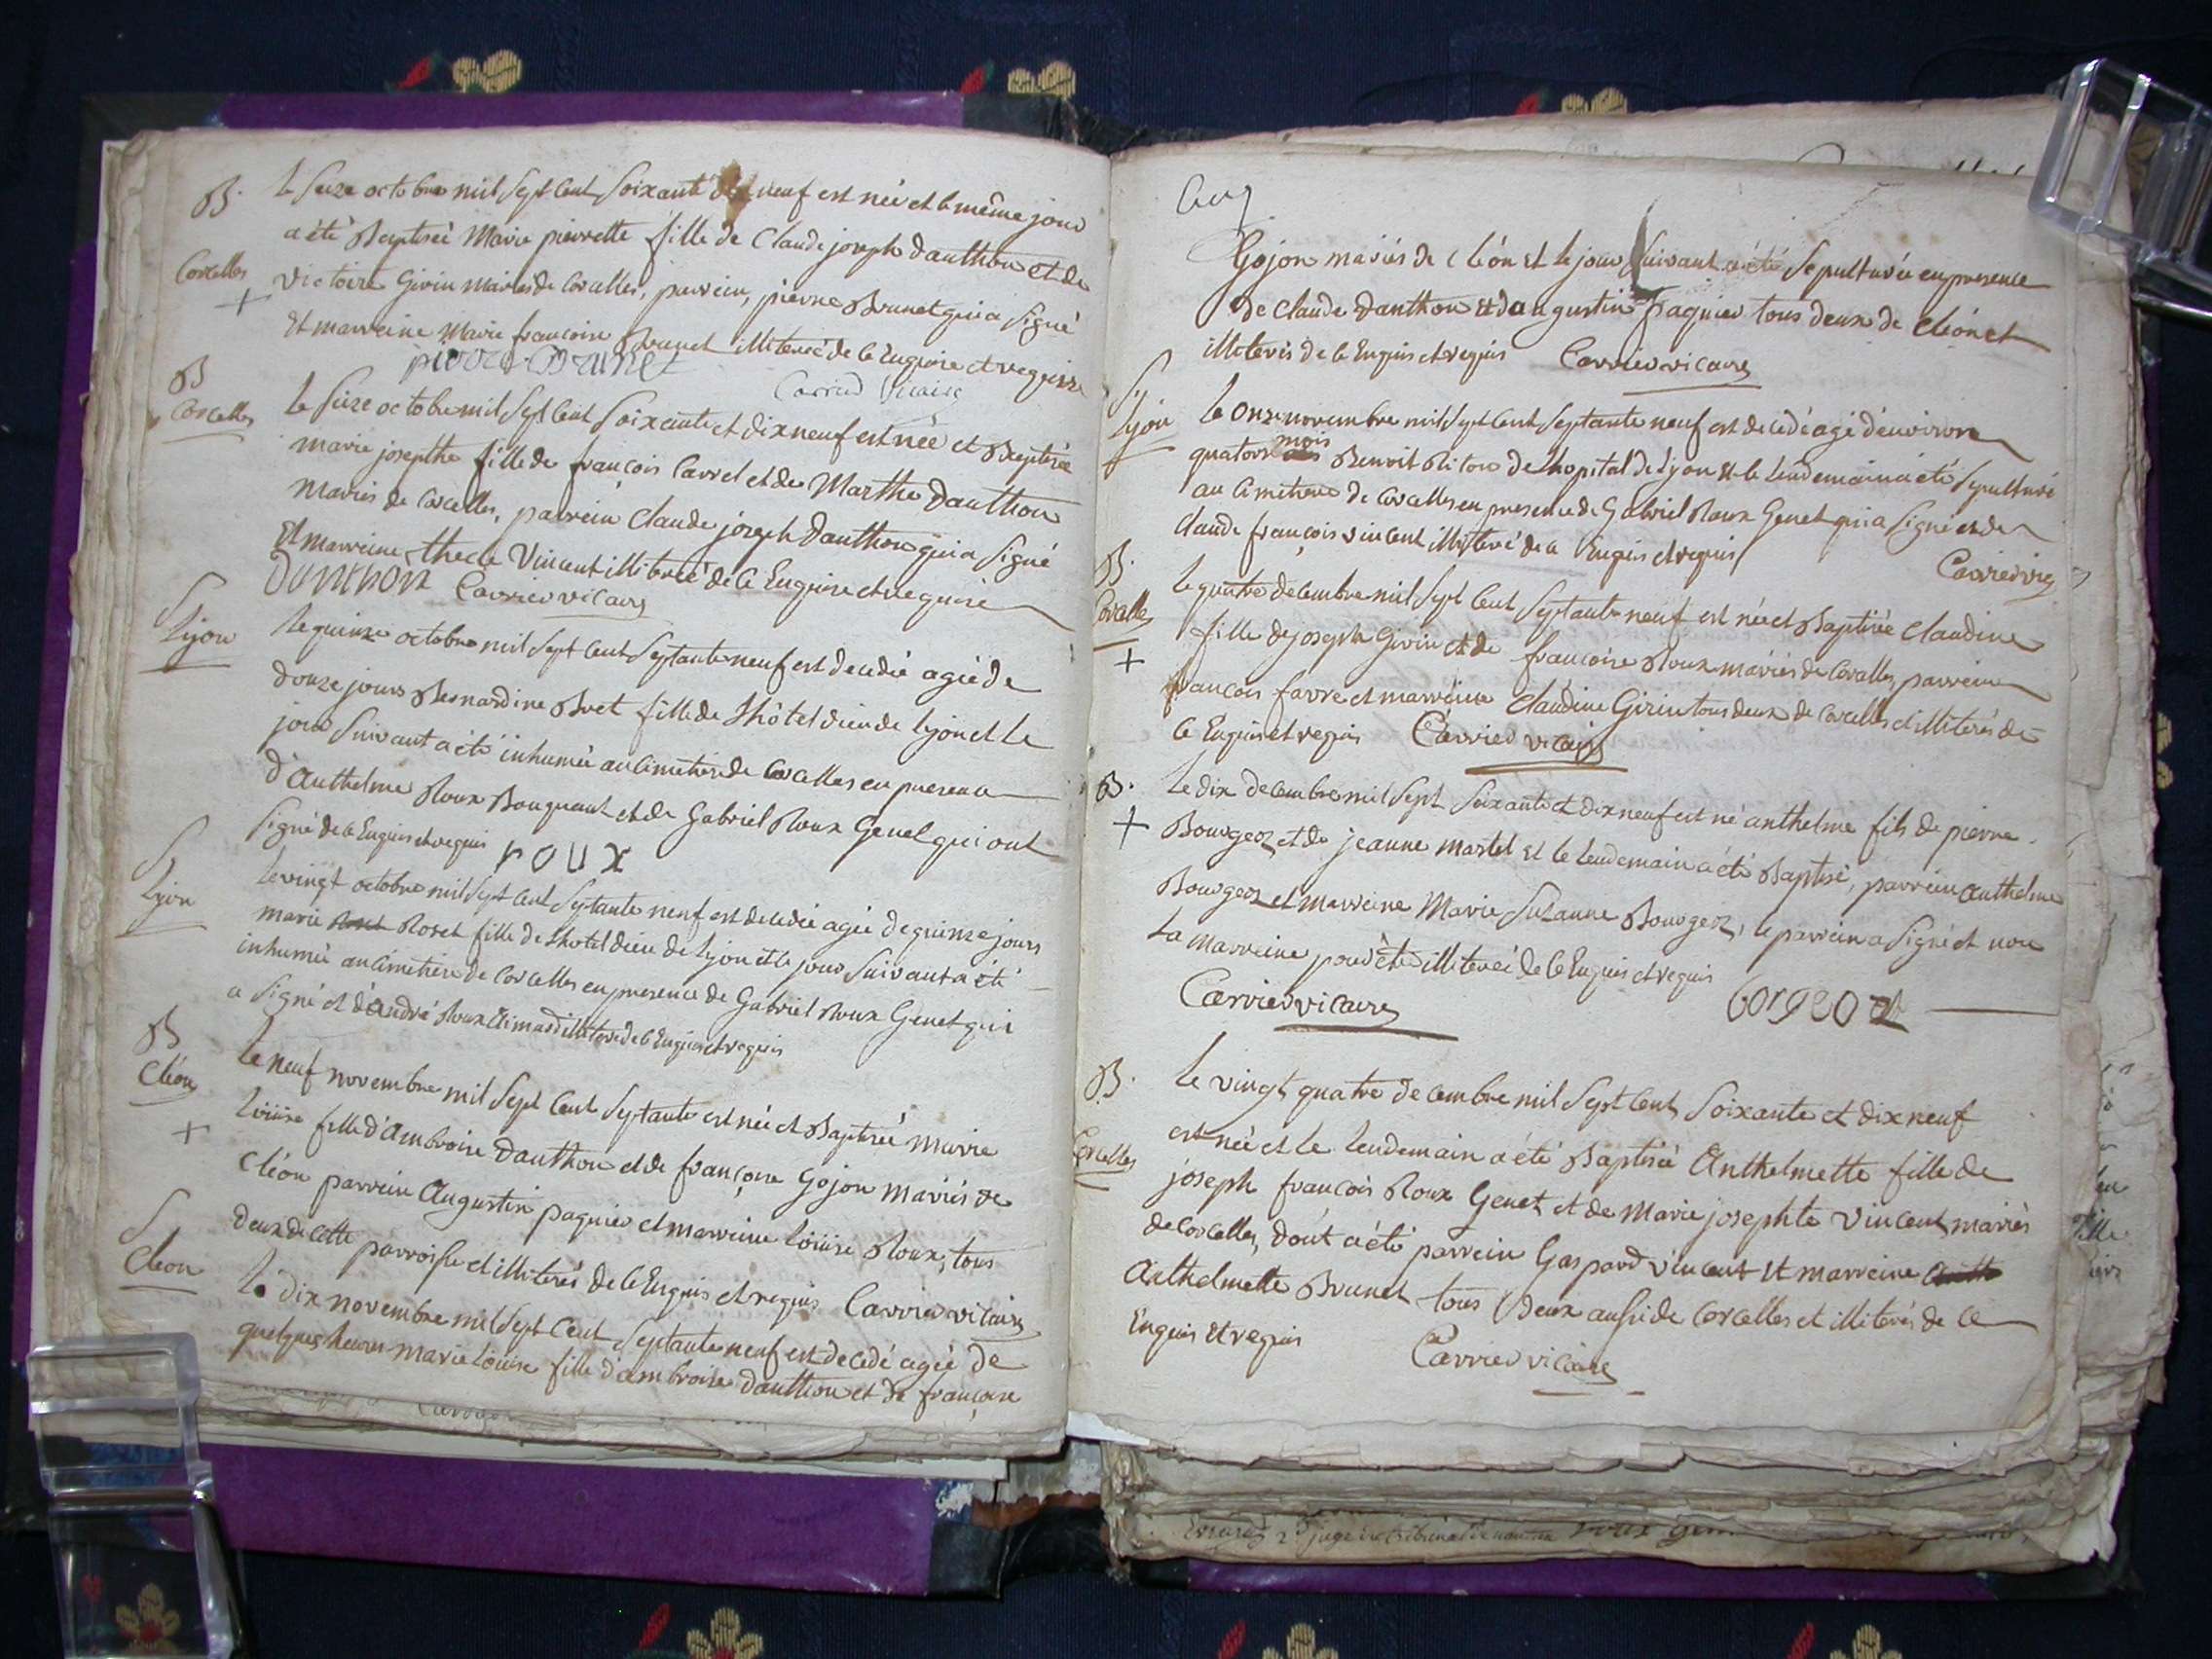 B.
Corcelles
+
le seize octobre mil sept cent soixante neuf est née et le même jour
a été Baptisée Marie pierrette fille de Claude joseph Dauthon et de
victoire Girin mariés de Corcelles, parrein, pierre Brunet qui a signé
Et marreine Marie françoise Brunet illiterée de ce Enquise et requise
pierre Brunet
Carrier vicaire
B
Corcelles
le seize octobre mil sept cent soixante et dix neuf est née et Baptisée
marie josephte fille de françois Carrel et de Marthe Dauthon
mariés de Corcelles, parrein Claude joseph Dauthon qui a signé
Et marreine thecle Vincent illiterée de ce Enquise et requise
Dauthon Carrier vicaire
S
Lyon
le quinze octobre mil sept cent septante neuf est decedée agée de
douze jours Bernardine Bret fille de l'hôtel dieu de Lyon et le
jour suivant a été inhumée au cimetière de Corcelles en presence
d'Anthelme Roux Bouquant et de Gabriel Roux Genet qui ont
signé de ce Enquis et requis roux
S
Lyon
le vingt octobre mil sept cent septante neuf est decedée agée de quinze jours
marie Roset fille de l'hotel dieu de Lyon et le jour suivant a été
inhumée au cimetière de Corcelles en presence de Gabriel Roux Genet qui
a signé et d'andré Roux illiteré de ce Enquis et requis
B
Cléon
+
le neuf novembre mil sept cent septante est née et Baptisée marie
Loüise fille d'Ambroise Dauthon et de françoise Gojon mariés de
Cléon parrein Augustin paquier et marreine loüise Roux, tous
deux de cette parroisse et illiterés de ce Enquis et requis Carrier vicaire
S
Cleon
le dix novembre mil sept cent septante neuf est decedé agée de
quelques heures marie Loüise fille d'ambroise Dauthon et de françoise
Gojon mariés de Cléon et le jour suivant a été sepulturée en presence
de Claude Dauthon et d'augustin paquier tous deux de Cléon et
illiterés de ce Enquis et requis Carrier vicaire
S
Lyon
le onze novembre mil sept cent septante neuf est decedé agé d'environ
mois
quatorze Benoit de l'hopital de Lyon et le lendemain a été sepulturé
au cimetiere de Corcelles en presence de Gabriel Roux Genet qui a signé et de
Claude françois vincent illiteré de ce Enquis et requis
Carrier vic
B.
Corcelles
+
le quatre decembre mil sept cent septante neuf est née et Baptisée Claudine
fille de joseph Girin et de francoise Roux mariés de Corcelles, parrein
francois favre et marreine Claudine Girin tous deux de Corcelles et illiterés de
ce Enquis et requis Carrier vicaire
B.
+
le dix decembre mil sept soixante et dix neuf est né anthelme fils de pierre
Bourgeoz et de jeanne Martel et le lendemain a été Baptisé, parrein Anthelme
Bourgeoz et marreine Marie Suzanne Bourgeoz, le parrein a signé et non
la marreine pour être illiterée de ce Enquis et requis
Carrier vicaire borgeoz
B.
Corcelles
le vingt quatre decembre mil sept cent soixante et dix neuf
est née et le lendemain a été Baptisée Anthelmette fille de
joseph francois Roux Genet et de Marie josephte Vincent mariés
de Corcelles, dont a été parrein Gaspard vincent et marreine
Anthelmette Brunet tous deux aussi de Corcelles et illiterés de ce
Enquis et requis
Carrier vicaire